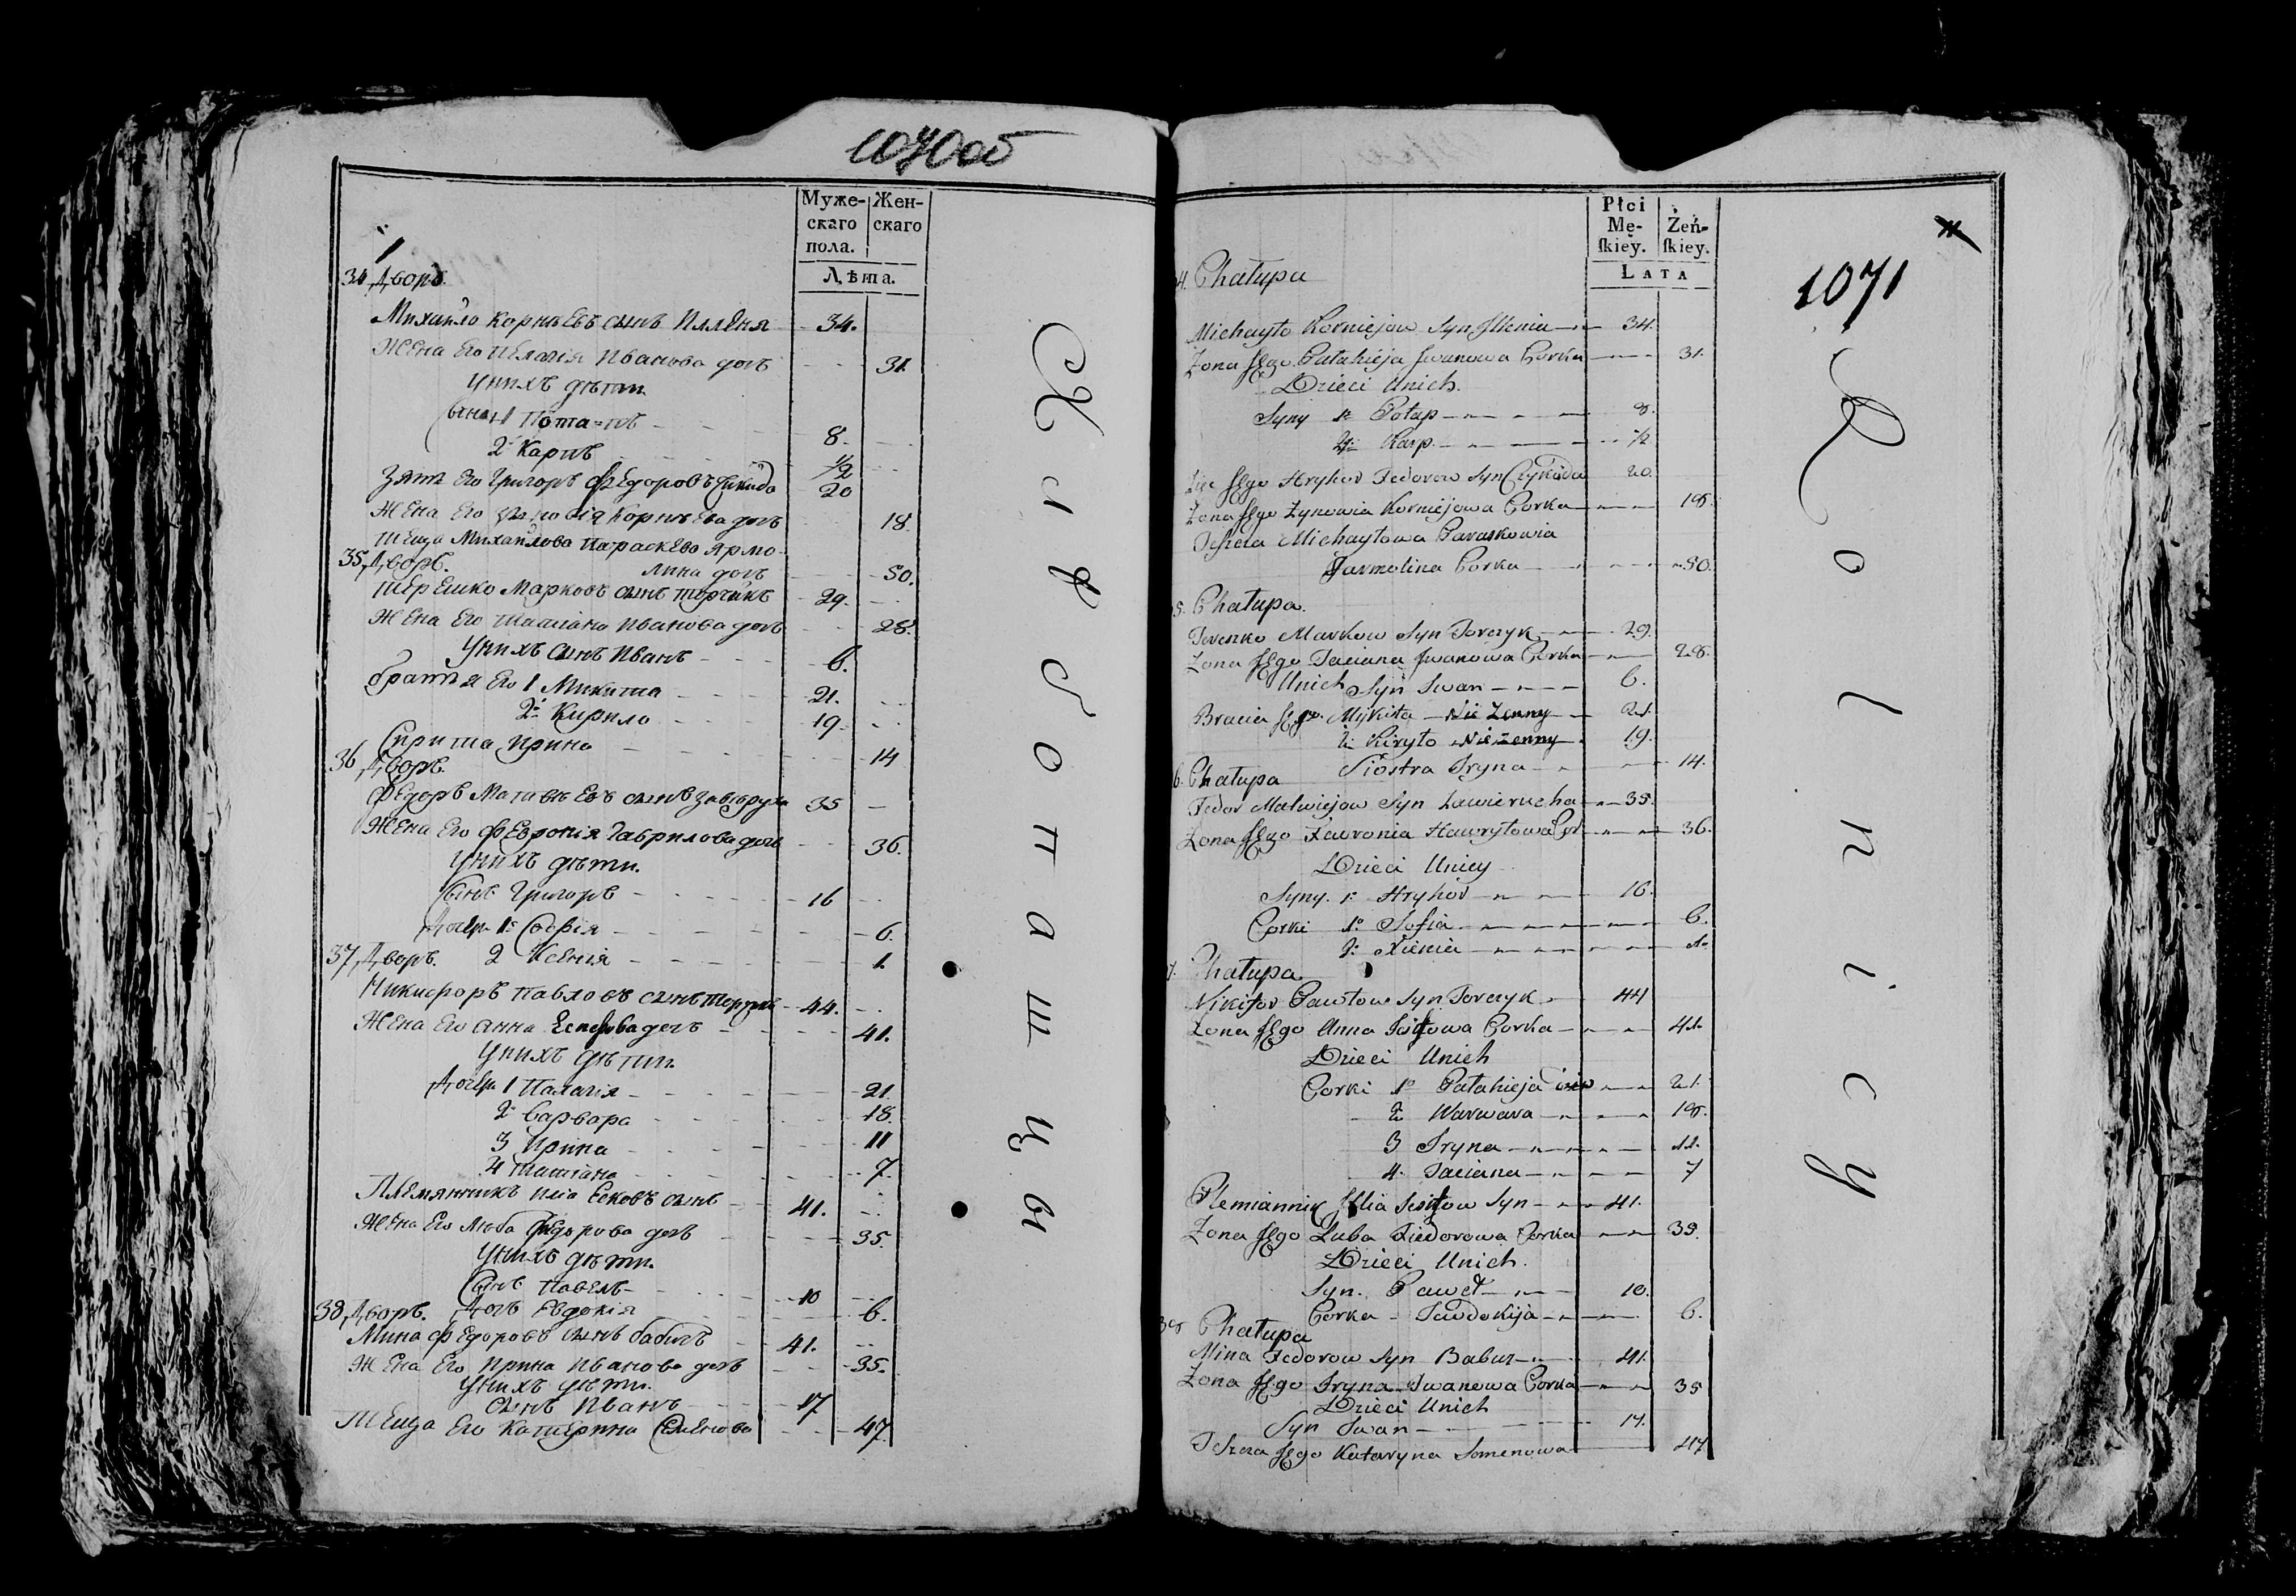 1070об
Муже-
скаго
пола.
Жен-
скаго
Лѣта.
34 Дворъ.
Михайло Корнѣевъ сынъ Иллѣня 34.
Жена Его Пелагія Иванова дочь 31.
У нихъ дѣти.
Сыны 1 Потапъ 8.
2 Карпъ 1/2
Зять Его Григоръ Федоровъ 20
Жена Его Зѣновія Корнѣева дочь 18.
Теща Михайлова Параскева Ярмо-
лина дочь 50.
35 Дворъ.
Терешко Марковъ сынъ Торчикъ 29.
Жена Его Татіана Иванова дочь 28.
У нихъ сынъ Иванъ 6.
братья Его 1 Микита 21.
2 Кирило 19.
Систра Ирина 14
36 Дворъ.
Федоръ Матвѣевъ сынъ Завѣруха 35
Жена Его Февронія Гаврилова дочь 36.
У нихъ дѣти.
Сынъ Григоръ 16
Дочери 1 Софія 6.
2 Ксенія 1.
37 Дворъ.
Никифоръ Павловъ сынъ Торчикъ 44.
Жена Его Анна дочь 41.
У нихъ дѣти.
Дочери 1 Палагія 21.
2 Варвара 18.
3 Ирина 11
4 Татіана 7.
Племянникъ Иліа Есковъ сынъ 41.
Жена Его Люба Федорова дочь 35.
У нихъ дѣти.
Сынъ Павелъ 10
Дочь Евдокія 6.
38 Дворъ.
Мина Федоровъ сынъ Бабичъ 41.
Жена Его Ирина Иванова дочь 35.
У нихъ дѣти.
Сынъ Иванъ 17
Теща Его Катерина Семенова 47.
Хлѣбопашцы
Płci
Mę-
ſkiey.
Żeń-
ſkiey.
LATA
1071
4. Chałupa
Michayło Korniejow Syn Jlleniа 34.
Zona Jego Pałahieja Jwanowa Corka 31.
Dzieci Unich.
Syny 1. Potap 8.
2. Karp 1/2
Jego Hryhor Fedorow Syn 20.
Zona Jego Zynowia Korniejowa Corka 18.
Teszcza Michayłowa Paraskowia
Jarmolina Corka 50.
5. Chałupa.
Tereszko Markow Syn Torczyk 29.
Zona Jego Taciana Jwanowa Corka 28.
Unich Syn Jwan 6.
Bracia Jego Mykita Nie Zenny 21.
2. Kiryło Nie zenny 19.
Siostra Jryna 14.
6. Chałupa
Fedor Matwiejow Syn Zawierucha 35.
Zona Jego Fawronia Hawryłowa Cor 36.
Dzieci Unich
Syny. 1. Hryhor 16.
Corki 1. Sofia 6.
2. Xienia 1.
7. Chałupa.
Nikifor Pawłow Syn Torczyk 44
Zona Jego Anna Corka 41.
Dzieci Unich
Corki 1. Pałahieja 21.
2 Warwara 18.
3 Jryna 11.
4. Taciana 7
Plemiannik Jllia Syn 41.
Zona Jego Luba Fiedorowa Corka 35.
Dzieci Unich.
Syn. Paweł 10.
Corka Jawdokija 6.
38 Chałupa
Mina Fedorow Syn Babicz 41.
Zona Jego Jryna Jwanowa Corka 35
Dzieci Unich
Syn Jwan 17.
Teszcza Jego Kataryna Semenowa 47
Rolnicy